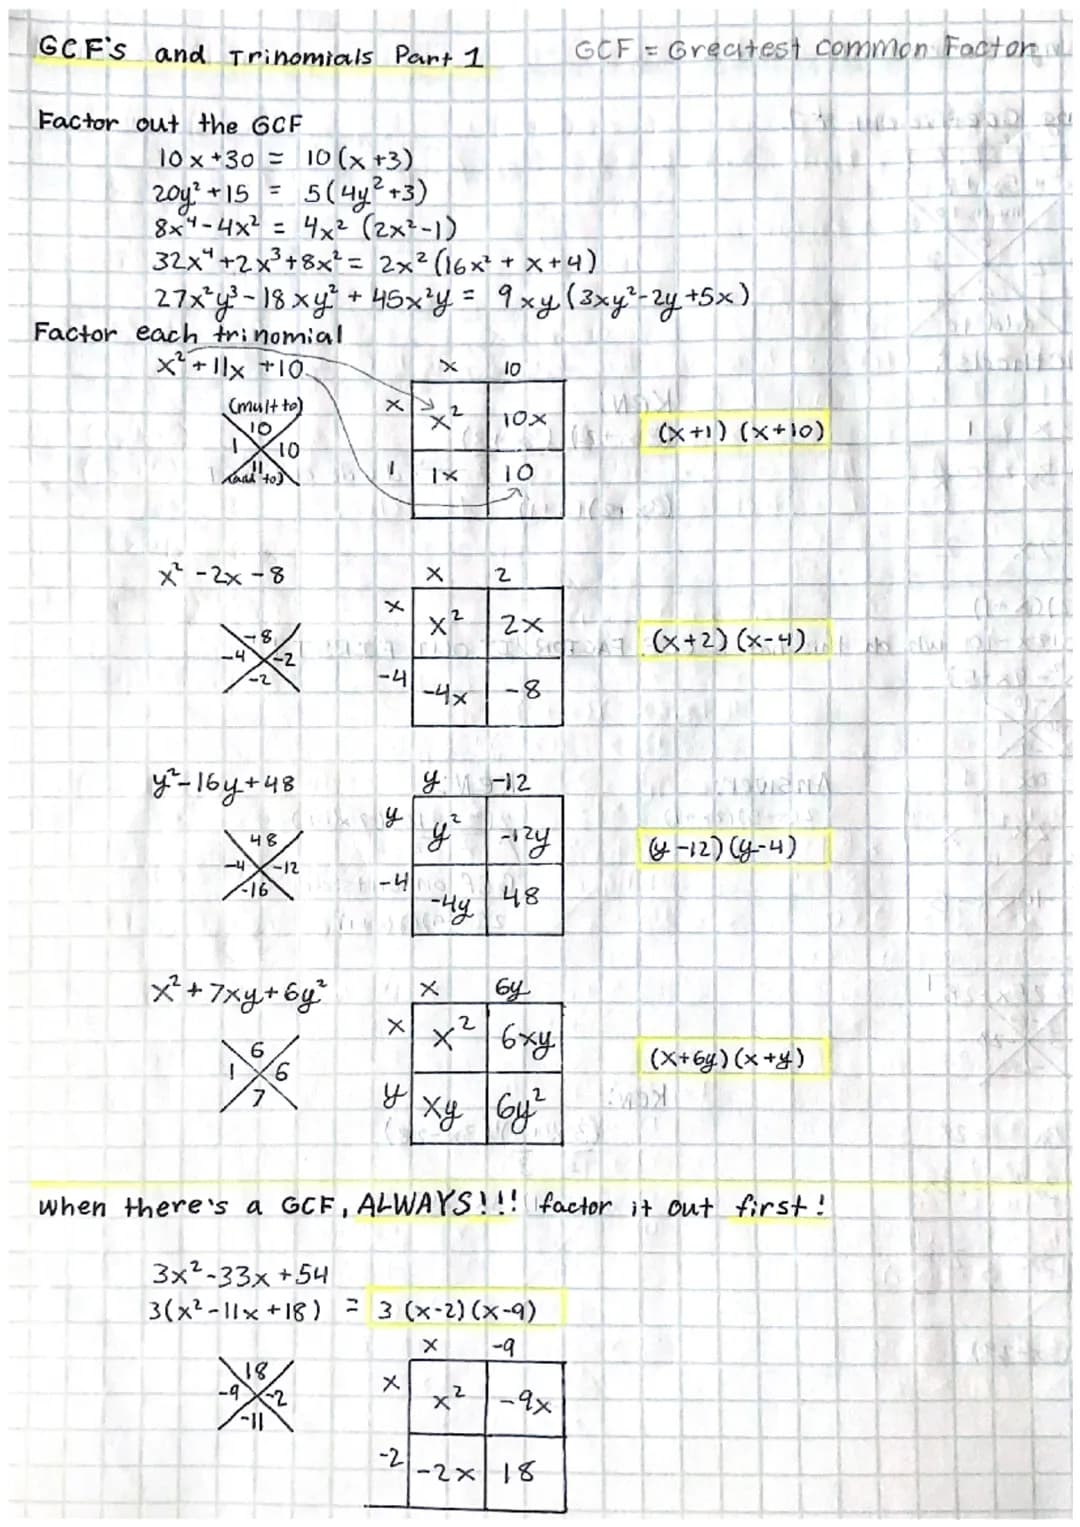 GCF's and Trinomials Part 1
GCF = Greatest Common Factor
Factor out the GCF
10x+30 = 10(x+3)
20y²+15 = 5(4y²+3)
8x⁴-4x² = 4x² (2x²-1)
32x⁴+2x³+8x² = 2x²(16x² + x+4)
27x²y³-18xy² + 45x²y = 9xy(3xy²-2y+5x)
Factor each trinomial
x²+11x +10
x 10
(mult to)
10
1 10
11
(add to)
x x² 10x
1 1x 10
(x+1) (x+10)
x² -2x -8
x 2
-8
-4 -2
-2
x x² 2x
-4 -4x -8
(x+2) (x-4)
y²-16y+48
y -12
48
-4 -12
-16
y y² -12y
-4 -4y 48
(y-12)(y-4)
x²+7xy+6y²
x 6y
6
1 6
7
x x² 6xy
y xy 6y²
(x+6y)(x+y)
when there's a GCF, ALWAYS!!! factor it out first!
3x²-33x +54
3(x²-11x +18) = 3 (x-2)(x-9)
x -9
18
-9 -2
-11
x x² -9x
-2 -2x 18